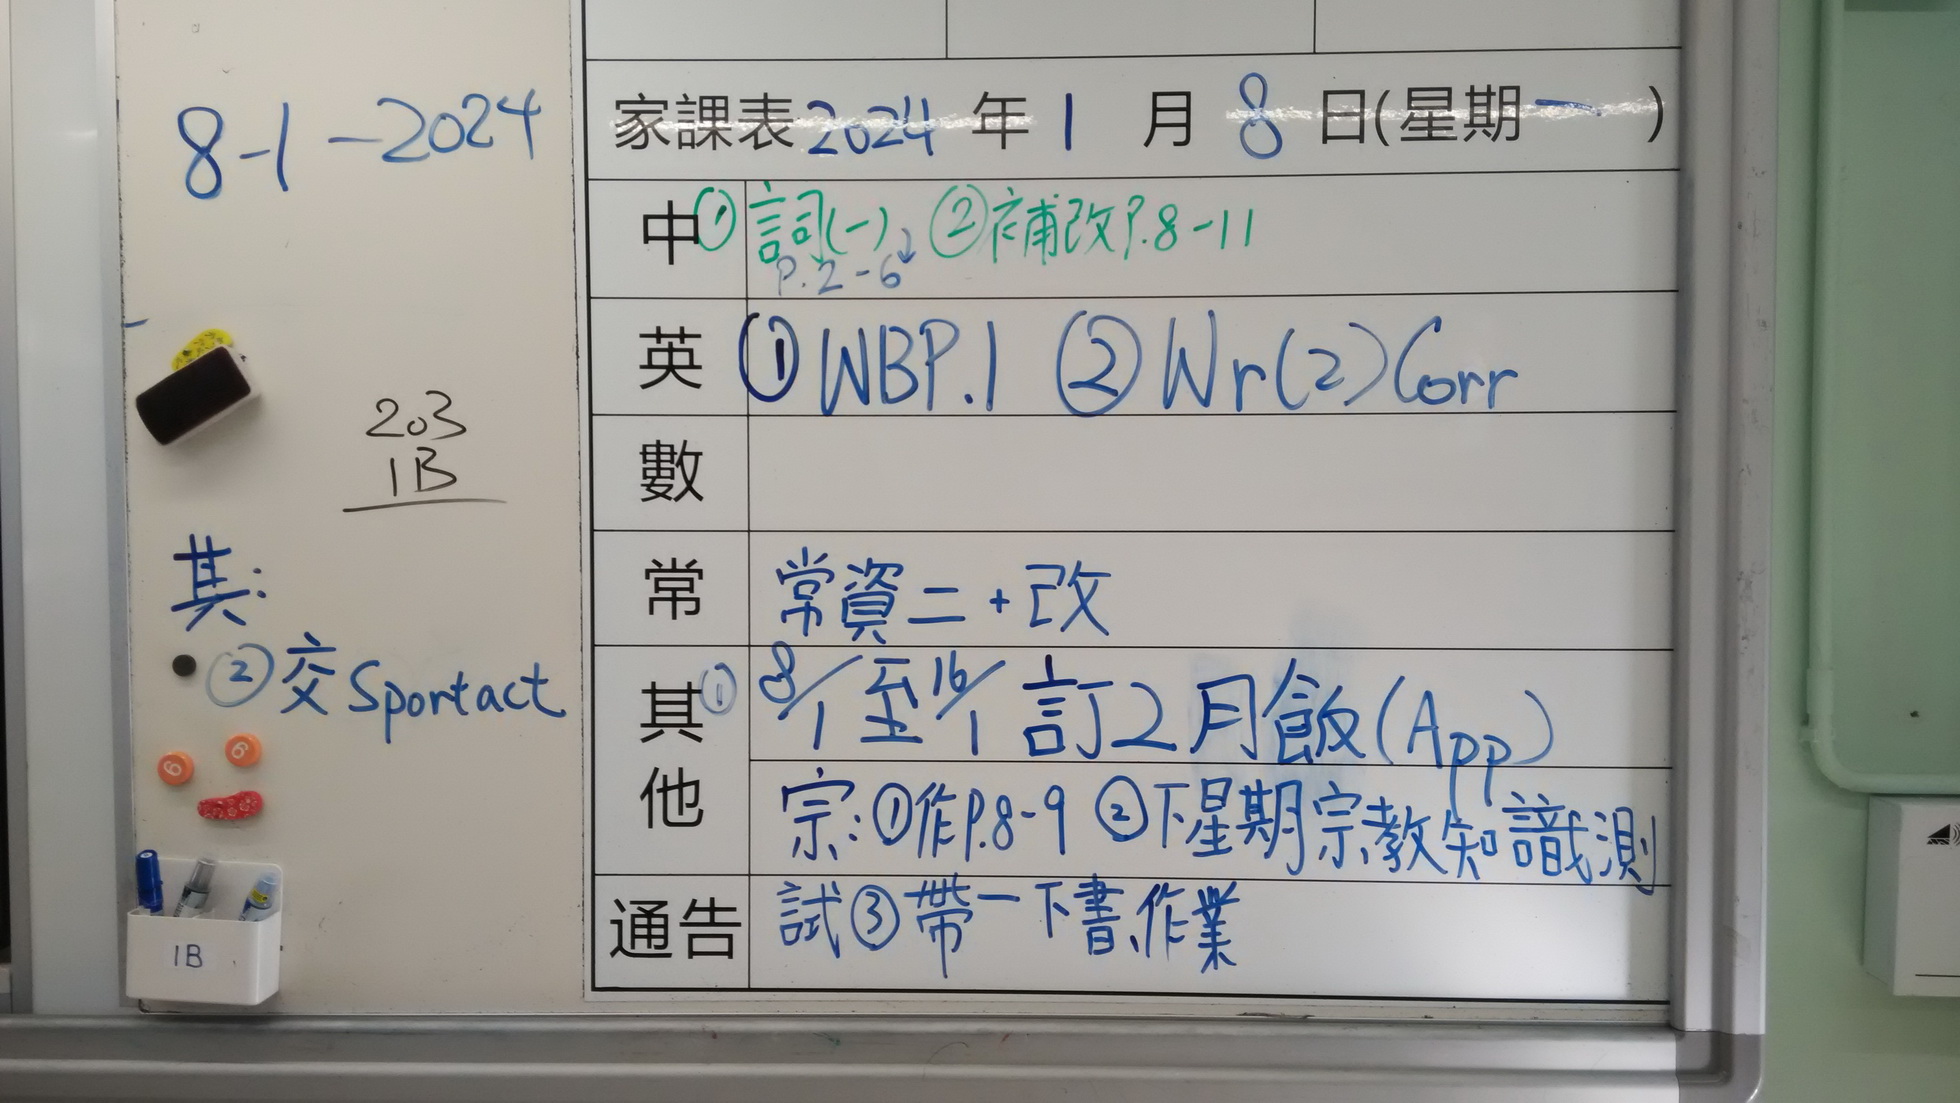 8-1-2024
203
1B
其:
②交Sportact
1B
家課表2024年1月8日(星期一)
中①詞(一)②補改P.8-11
P.2-6
英①WBP.1 ②Wr(2)Corr
數
常 常資二+改
其他①8/1至16/1訂2月飯(App)
宗:①作P.8-9 ②下星期宗教知識測
通告 試③帶一下書、作業
6
6